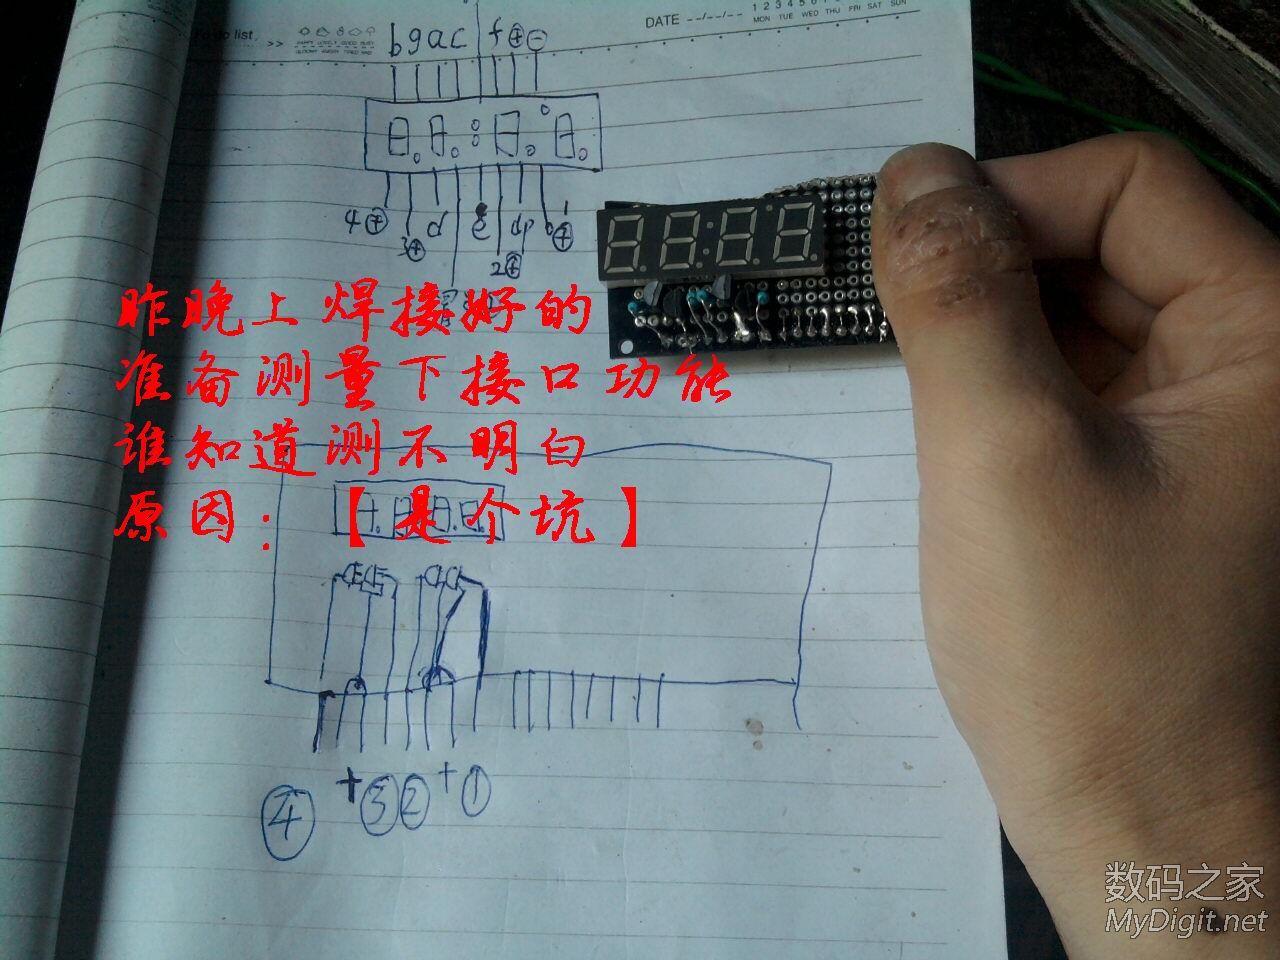 To do list >>
DATE --/--/--
1 2 3 4 5
MON TUE WED THU FRI SAT SUN
b g a c f + −
4+ 3+ d e 2+ dp 1+
昨晚上焊接好的
准备测量下接口功能
谁知道测不明白
原因：【是个坑】
+ +
④ ③ ② ①
数码之家
MyDigit.net